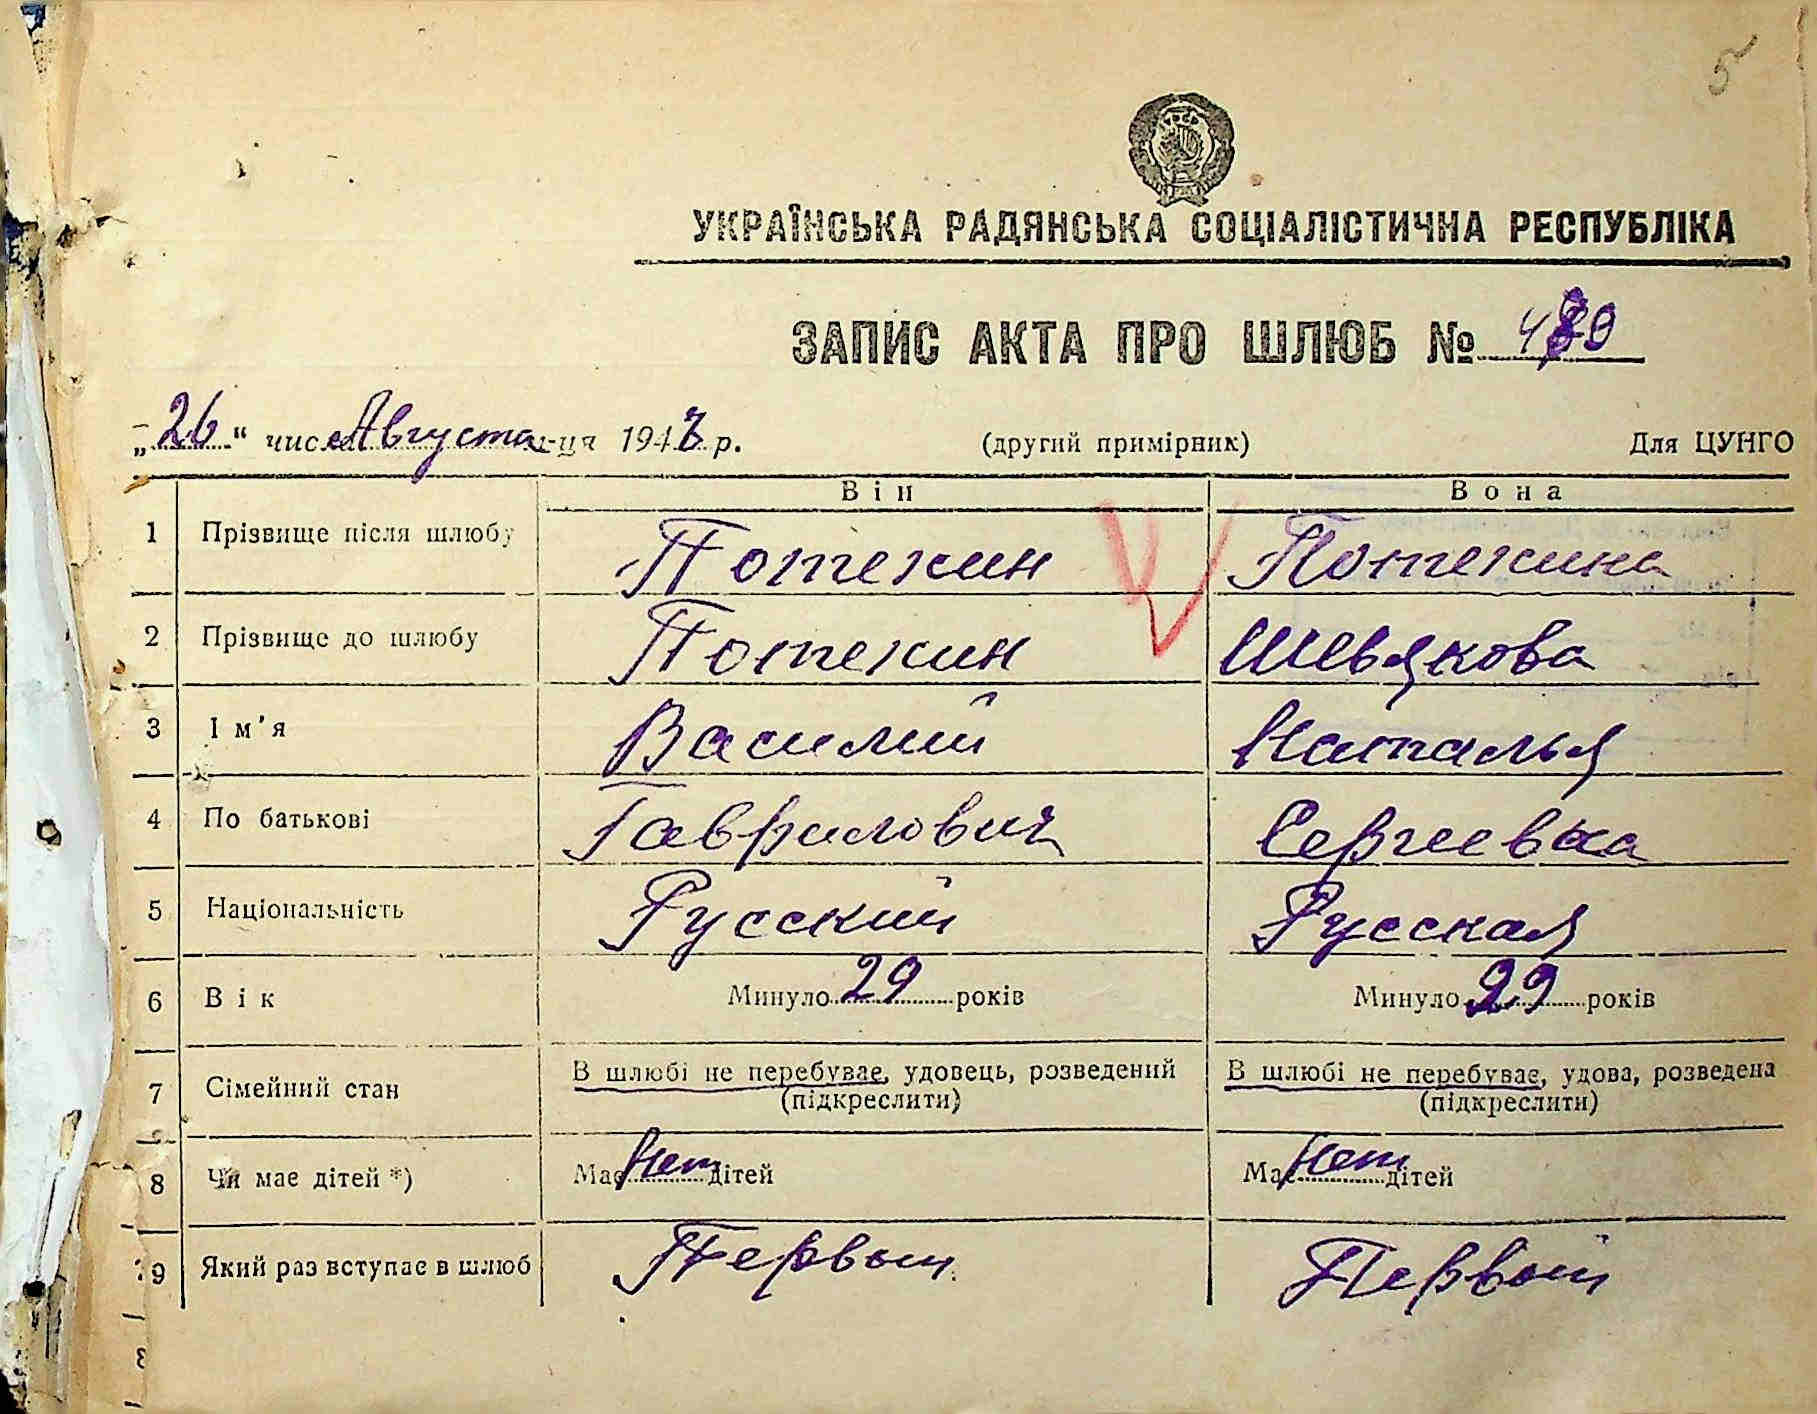 5
УКРАЇНСЬКА РАДЯНСЬКА СОЦІАЛІСТИЧНА РЕСПУБЛІКА
ЗАПИС АКТА ПРО ШЛЮБ №
„26“ числа Августа м-ця 194 р. (другий примірник) Для ЦУНГО
Він Вона
1 Прізвище після шлюбу Потехин Потехина
2 Прізвище до шлюбу Потехин Шевякова
3 Ім'я Василий Наталья
4 По батькові Гаврилович Сергеевна
5 Національність Русский Русская
6 Вік Минуло 29 років Минуло 29 років
7 Сімейний стан В шлюбі не перебуває, удовець, розведений В шлюбі не перебуває, удова, розведена
(підкреслити) (підкреслити)
8 Чи має дітей *) Має Нет дітей Має Нет дітей
9 Який раз вступає в шлюб Первый Первый